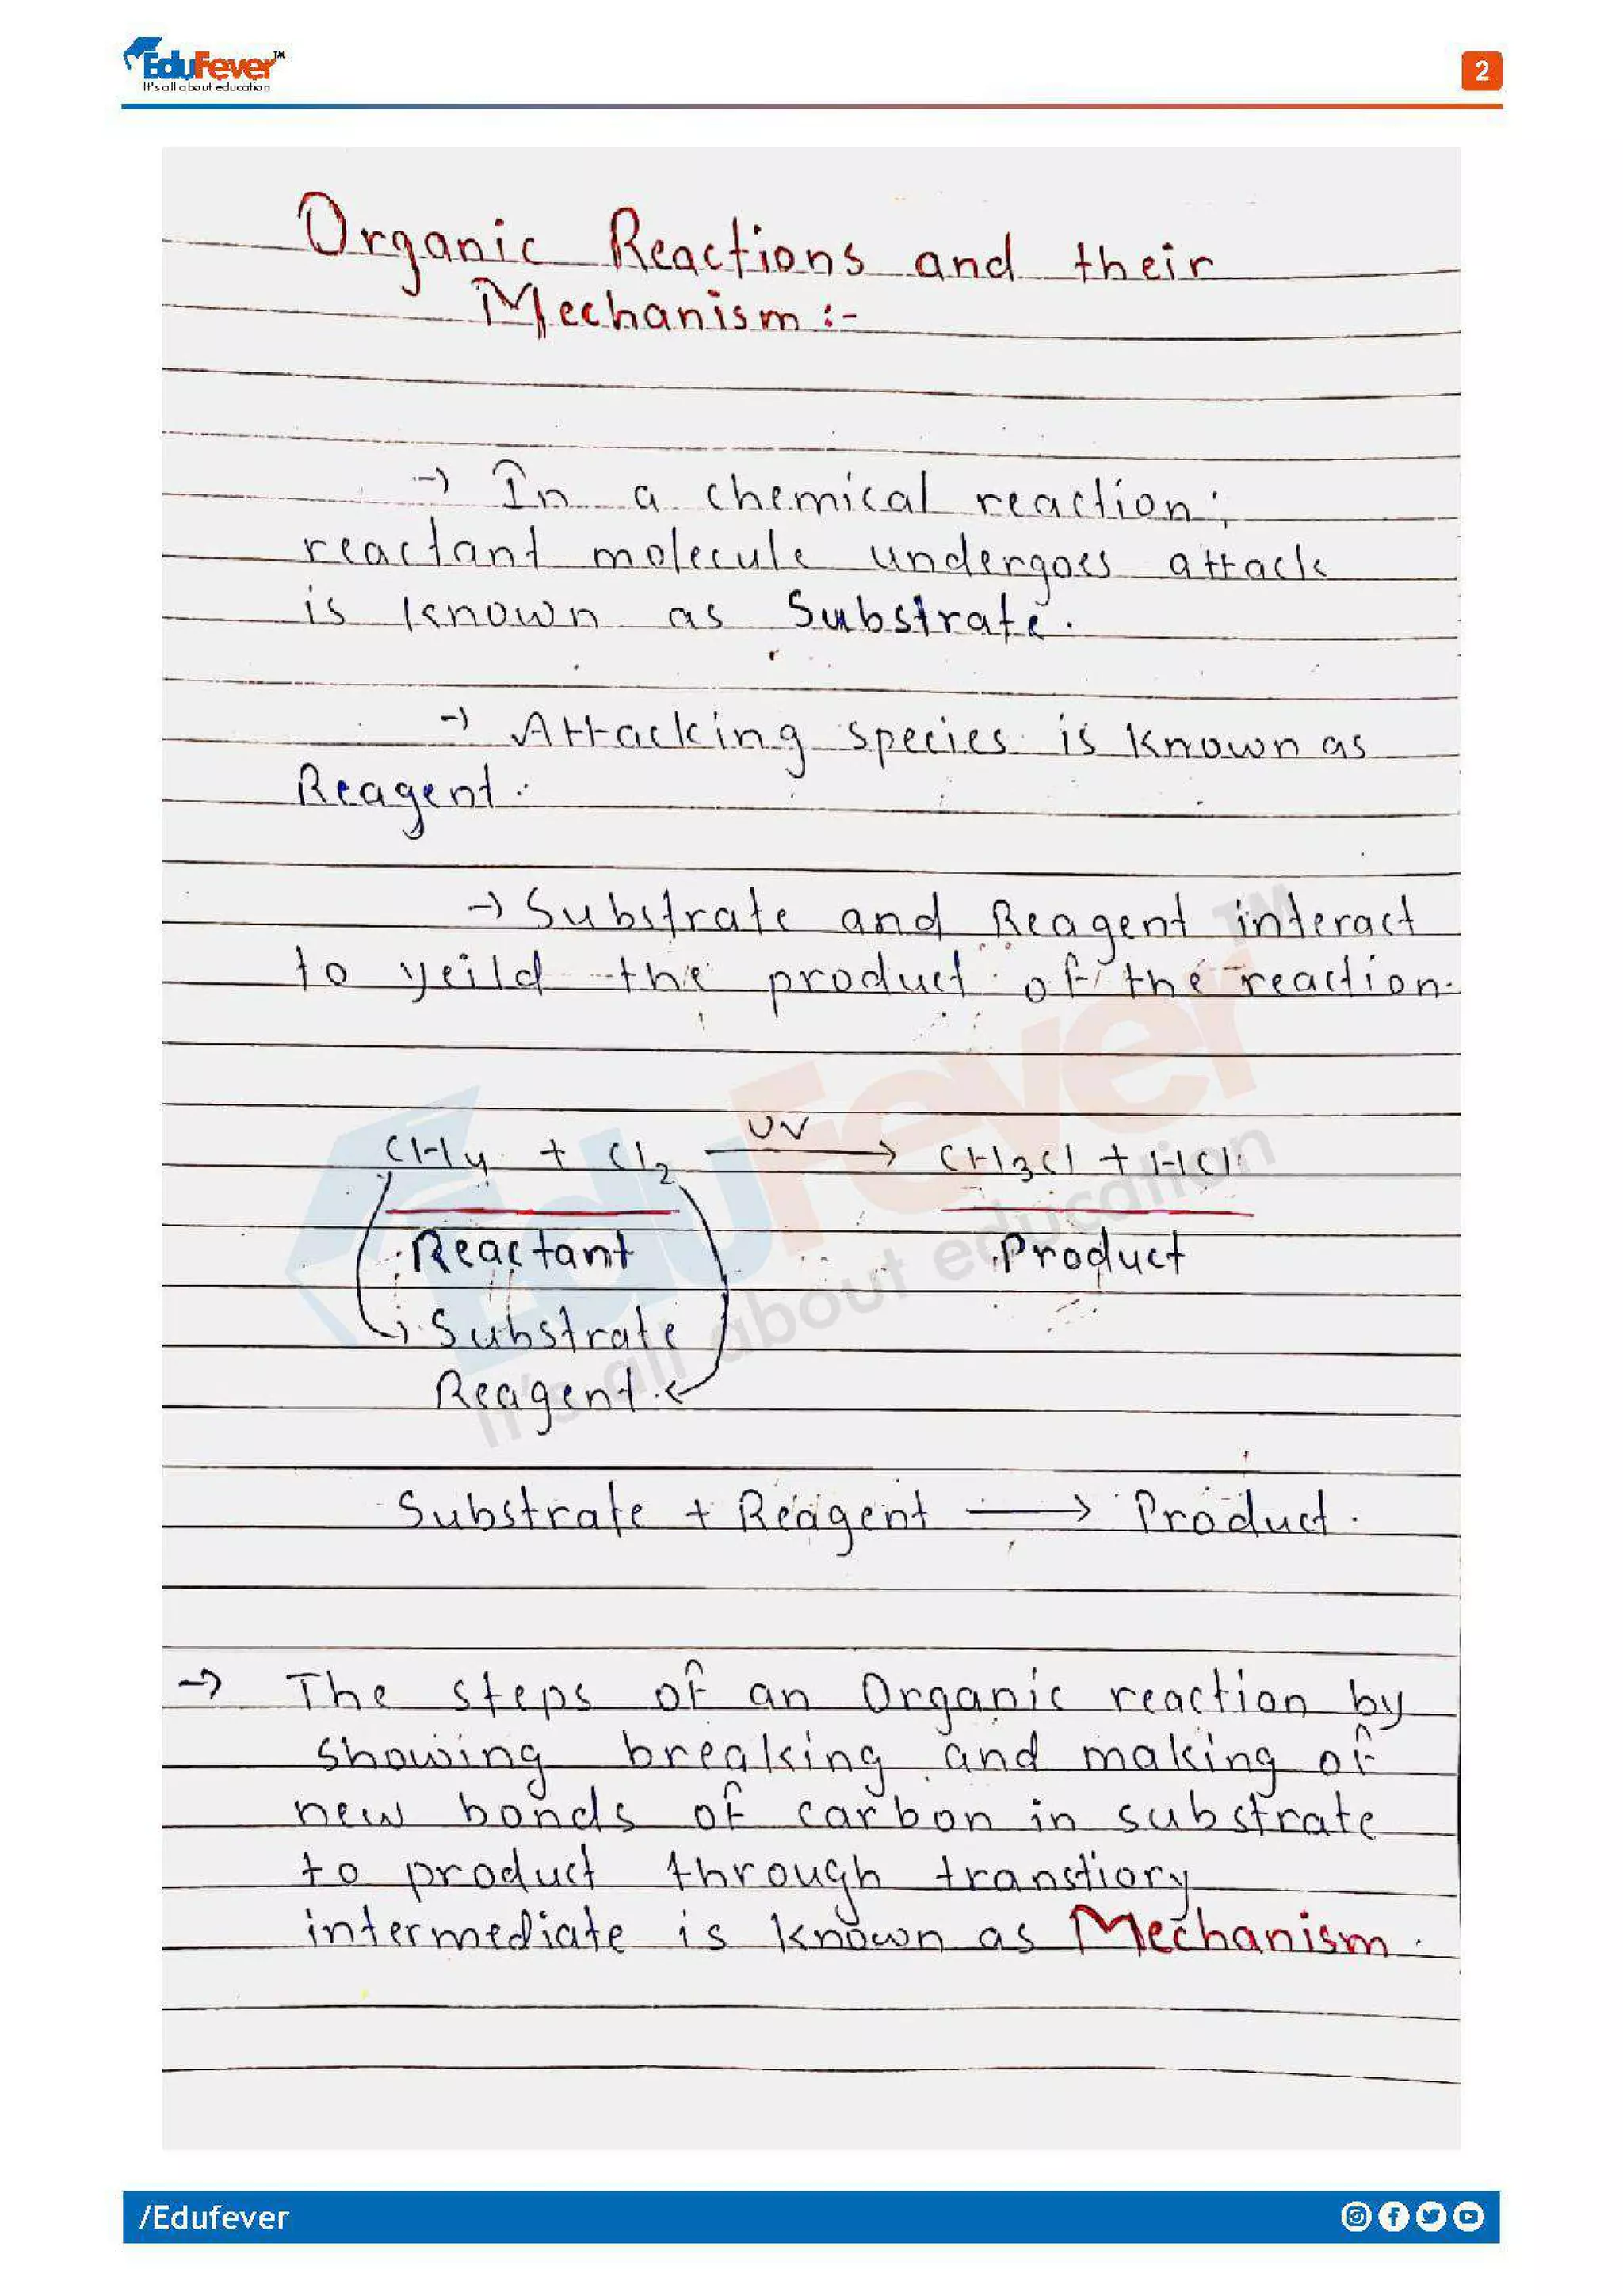 EduFever™
It's all about education
2
Organic Reactions and their
Mechanism :-
→ In a chemical reaction,
reactant molecule undergoes attack
is known as Substrate.
→ Attacking species is known as
Reagent.
→ Substrate and Reagent interact
to yeild the product of the reaction.
CH4 + Cl2 —UV→ CH3Cl + HCl
Reactant Product
Substrate
Reagent
Substrate + Reagent → Product.
→ The steps of an Organic reaction by
showing breaking and making of
new bonds of carbon in substrate
to product through transtiory
intermediate is known as Mechanism.
EduFever™
It's all about education
/Edufever